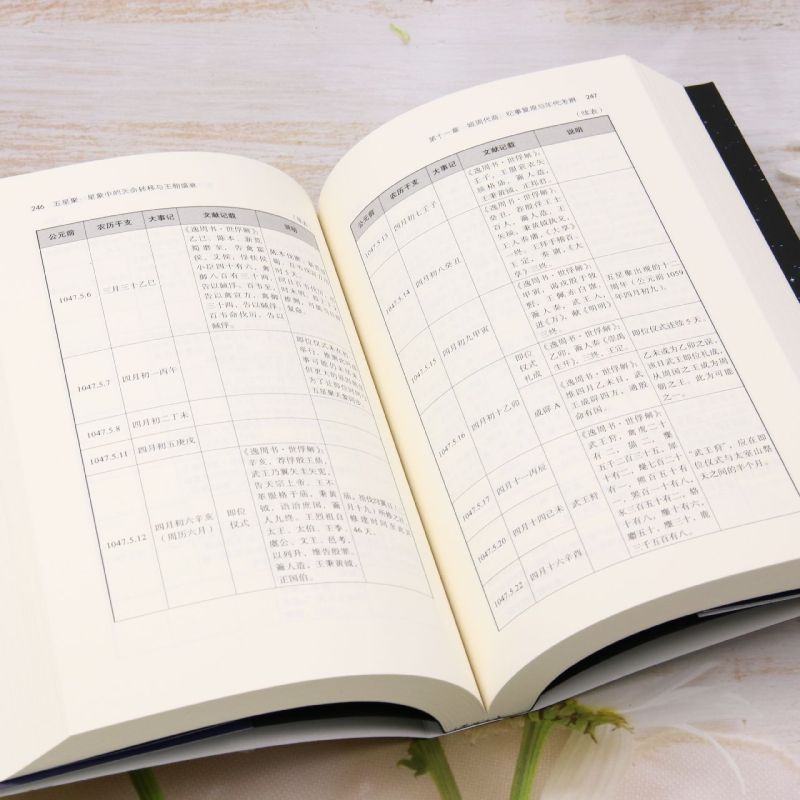 246 五星聚:星象中的天命转移与王朝盛衰
公元前 农历干支 大事记 文献记载 说明
1047.5.6 三月三十乙巳
《逸周书·世俘解》:
乙巳,陈本、新荒
蜀磨至,告禽霍
侯,
小臣四十有六,禽
御八百有三十两,
告以馘俘。百韦至,
告以禽宣方,禽御
三十两,告以馘俘。
百韦命伐厉,告以
馘俘。
复命。
1047.5.7 四月初一丙午
即位仪式
1047.5.8 四月初二丁未
1047.5.11 四月初五庚戌
1047.5.12 四月初六辛亥
(周历六月)
即位
仪式
《逸周书·世俘解》:
辛亥,荐俘殷王鼎,
武王乃翼矢珪矢宪,
告天宗上帝。王不
革服格于庙,秉黄
钺,语治庶国,籥
人九终。王烈祖自
太王、太伯、王季、
虞公、文王、邑考,
以列升,维告殷罪。
籥人造,王秉黄钺,
正国伯。
46天。
第十一章 殷周代商:纪事复原与年代考辨 247
(续表)
公元前 农历干支 大事记 文献记载 说明
1047.5.13 四月初七壬子
《逸周书·世俘解》:
壬子,王服衮衣矢
琰格庙,籥人造,
王秉黄钺,正邦君。
1047.5.14 四月初八癸丑
《逸周书·世俘解》:
癸丑,荐殷俘王士
百人。籥人造,王
矢琰,秉黄钺执戈,
王入奏庸,《大享》
一终,王拜手稽首。
王定,奏庸,《大
享》三终。
1047.5.15 四月初九甲寅
《逸周书·世俘解》:
甲寅,谒戎殷于牧
野,王佩赤白旂,
籥人奏,武王入,
进《万》,献《明明》
五星聚出现的十二
周年(公元前1059
年四月初九)。
1047.5.16 四月初十乙卯
即位
仪式
礼成
《逸周书·世俘解》:
乙卯,籥人奏《崇禹
生开》,三终,王定。
即位仪式连续5天。
或辟A
《逸周书·世俘解》:
维四月乙未日,武
王成辟四方,通殷
命有国。
乙未或为乙卯之误,
该日武王即位礼成,
从周国之王成为周
朝之王。此为可能
之一。
1047.5.17 四月十一丙辰
1047.5.20 四月十四己未
1047.5.22 四月十六辛酉
武王狩
《逸周书·世俘解》:
武王狩,禽虎二十
有二,猫二,麋
五千二百三十五,犀
十有二,氂七百二十
有一,熊百五十有
一,罴百一十有八,
豕三百五十有二,貉
十有八,麈十有六,
麝五十,麋三十,鹿
三千五百有八。
“武王狩”,应在即
位仪式与太室山祭
天之间的半个月。